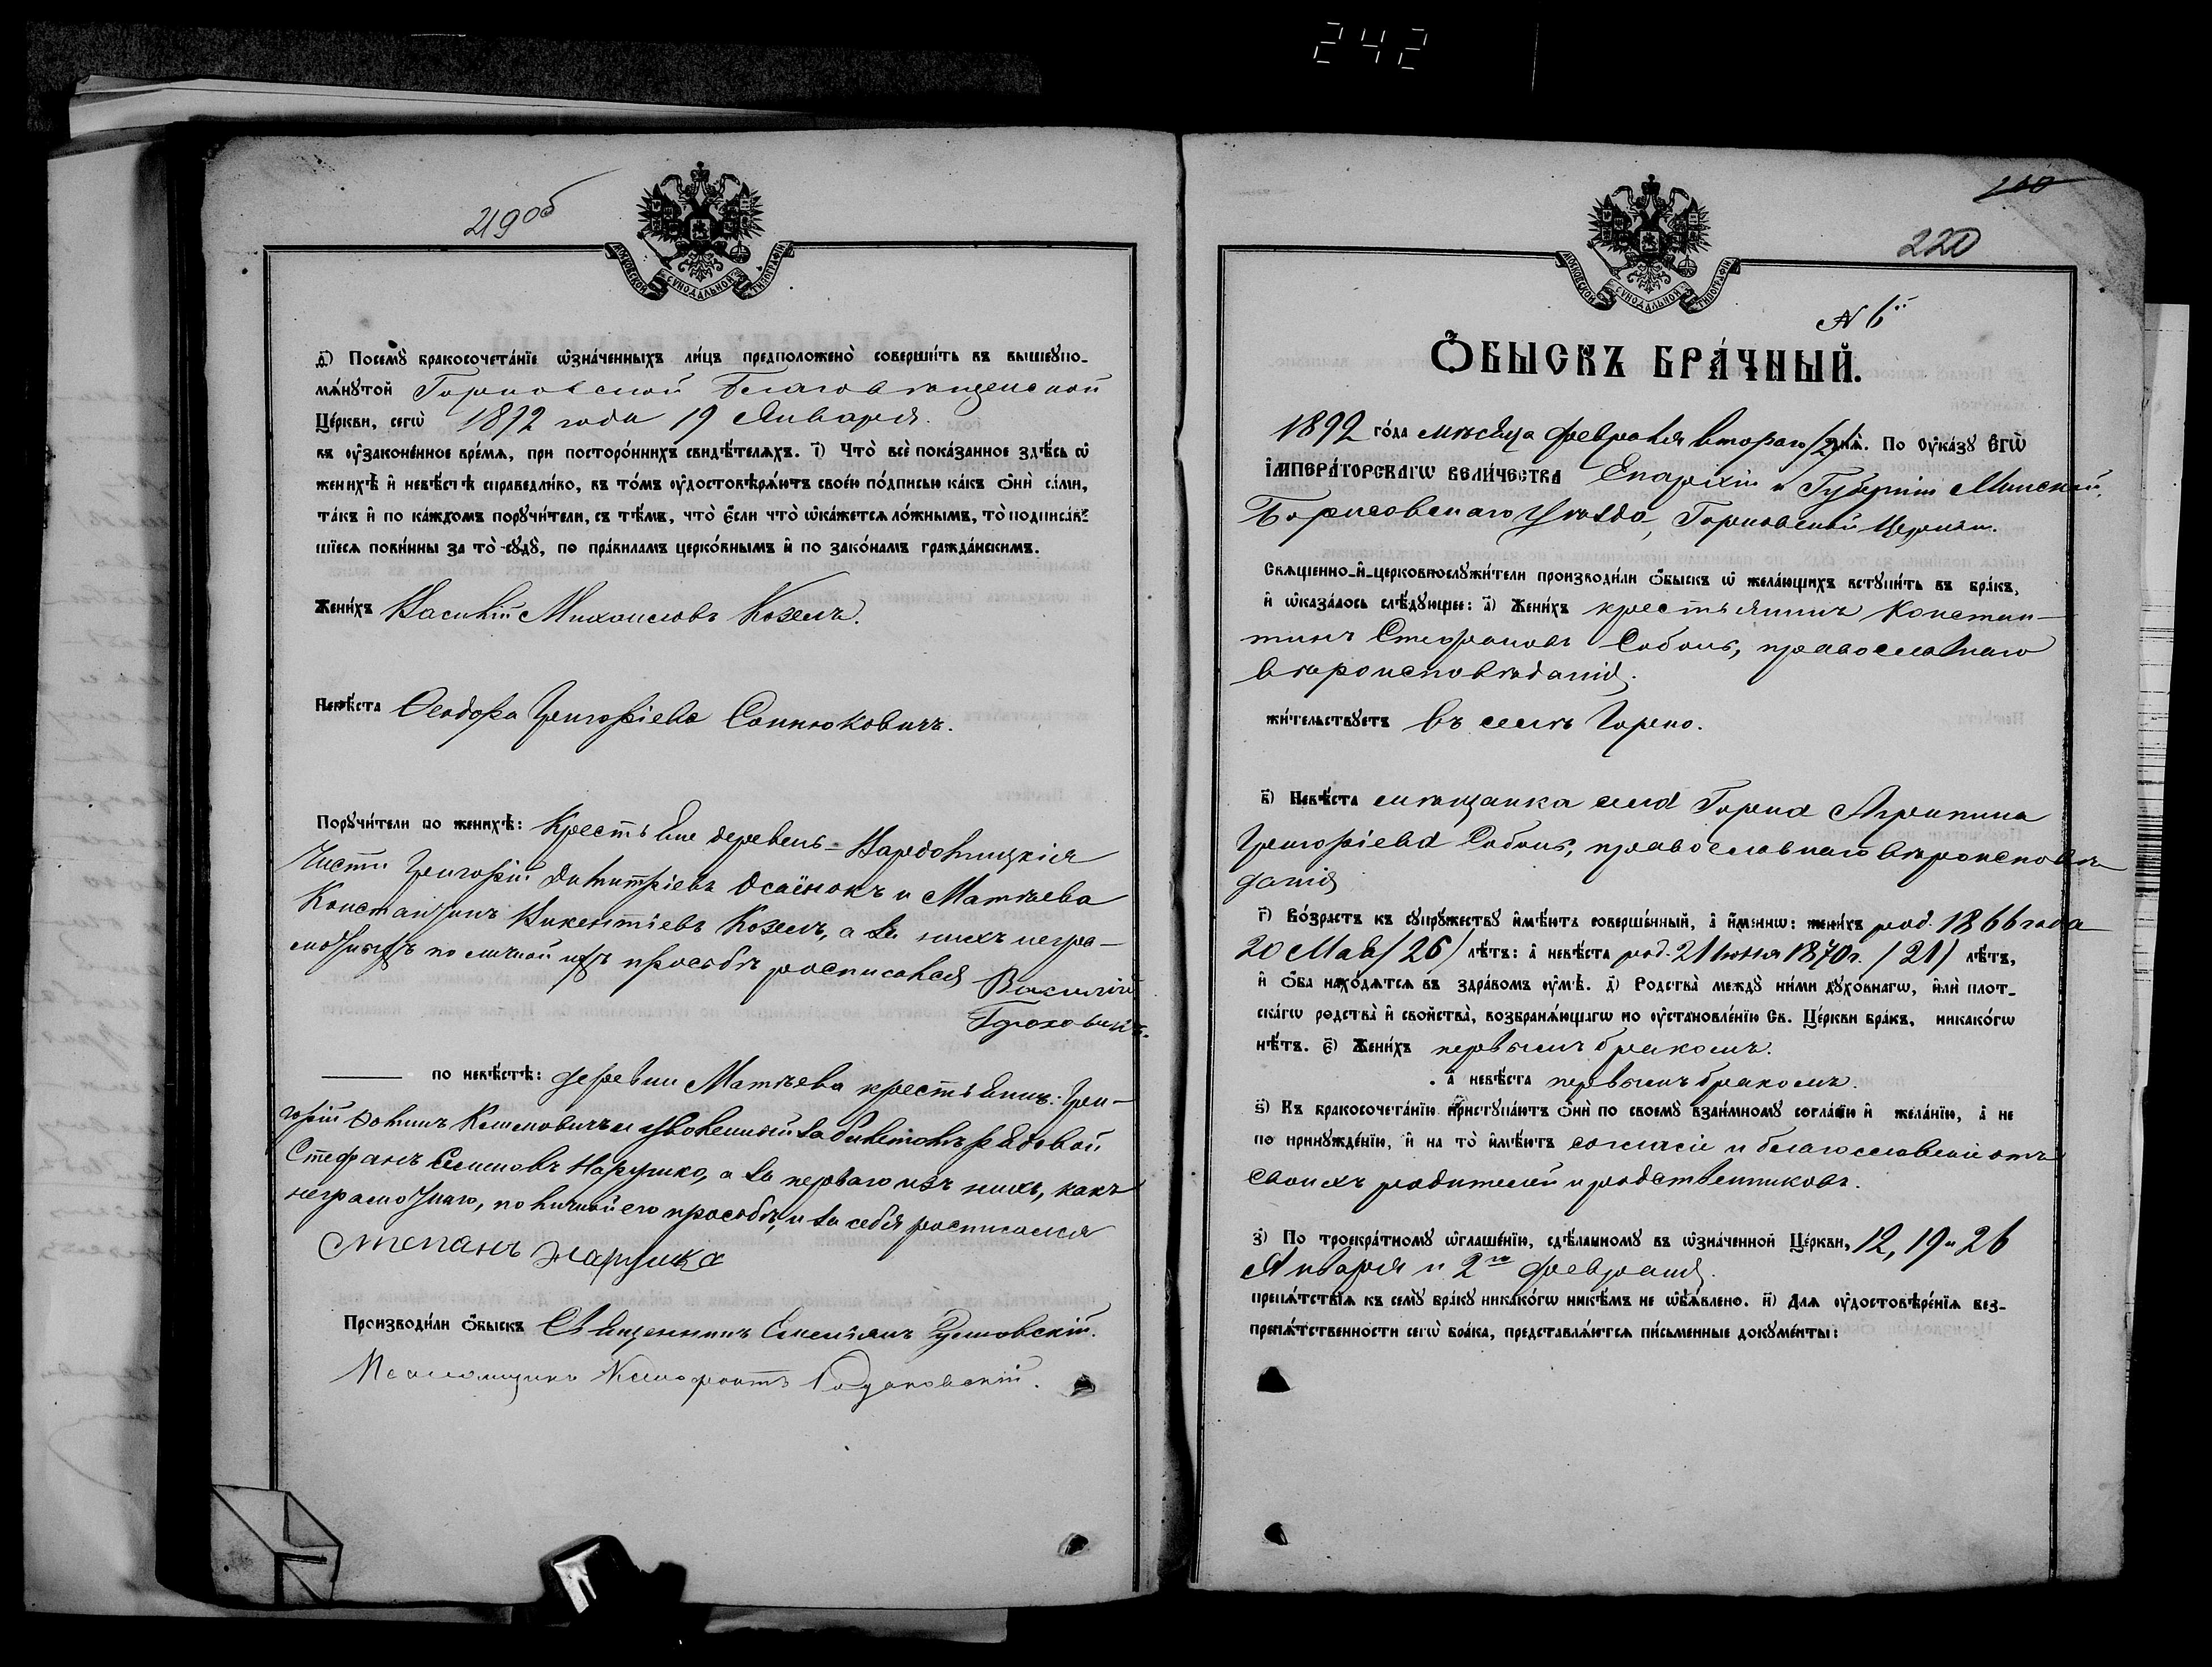 242
219об
МОСКОВСКОЙ СѴНОДАЛЬНОЙ ТИПОГРАФІИ
д҃) Посемꙋ̀ бракосочета́нїе ѡ҆зна́ченныхъ ли́цъ предположено̀ соверши́ть въ вышеꙋпо-
мѧ́нꙋтой Горновской Благовѣщенской
Це́ркви, сегѡ̀ 1892 года 19 Января.
въ ᲂу҆зако́ненное вре́мѧ, при посторо́ннихъ свидѣ́телѧхъ. і҃) Что̀ всѐ пока́занное здѣ́сь ѡ҆
женихѣ̀ и҆ невѣ́стѣ справедли́во, въ то́мъ ᲂу҆достовѣрѧ́ютъ свое́ю по́дписью ка́къ ѻ҆нѝ са́ми,
та́къ и҆ по ка́ждомъ порꙋчи́тели, съ тѣ́мъ, что̀ є҆́сли что̀ ѡ҆ка́жетсѧ ло́жнымъ, то̀ подписа́в-
шїесѧ пови́нны за то̀ сꙋдꙋ̀, по пра́виламъ церко́внымъ и҆ по зако́намъ гражда́нскимъ.
Жени́хъ Василій Михаиловъ Козелъ.
Невѣ́ста Ѳеодора Григоріева Соннюковичъ.
Порꙋчи́тели по женихѣ̀: Крестьяне деревень-Нардовицкія
Чисти Григорій Димитріевъ Осаёнокъ и Матвѣева
Константинъ Викентіевъ Козелъ, а за нихъ негра-
мотныхъ по личной ихъ просьбѣ росписался Василій
Гороховикъ.
по невѣ́стѣ: деревни Матвѣева крестьянинъ: Гри-
горій Фоминъ Климовичъ и уволенный за билетомъ рядовой
Стефанъ Семиновъ Нарушко, а за перваго изъ нихъ, какъ
неграмотнаго, по личной его просьбѣ, и за себя росписался
Степанъ Нарушка
Производи́ли ѻ҆́быскъ Священникъ Рушовскій.
Псаломщикъ
220
МОСКОВСКОЙ СѴНОДАЛЬНОЙ ТИПОГРАФІИ
N 6й
Ѻ҆́БЫСКЪ БРА́ЧНЫЙ.
1892 го́да мѣсяца февраля втораго /2/ днѧ̀. По ᲂу҆ка́зꙋ Є҆ГѠ̀
І҆МПЕРА́ТОРСКАГѠ ВЕЛИ́ЧЕСТВА Епархіи и Губерніи Минской,
Борисовскаго Уѣзда, Горновской Церкви.
Свѧще́нно-и҆-церковнослꙋжи́тели производи́ли ѻ҆́быскъ ѡ҆ жела́ющихъ встꙋпи́ть въ бра́къ,
и҆ ѡ҆каза́лось слѣ́дꙋющее: а҃) Жени́хъ крестьянинъ Констан-
тинъ Стефановъ Соболь, православнаго
вѣроисповѣданія.
жи́тельствꙋетъ въ селѣ Горно.
в҃) Невѣ́ста мѣщанка села Горна Агрипина
Григоріева Соболь, православнаго вѣроисповѣ-
данія
г҃) Во́зрастъ къ сꙋпрꙋ́жествꙋ и҆мѣ́ютъ соверше́нный, а҆ и҆́меннѡ: жени́хъ род. 1866 года
20 Мая /26/ лѣ́тъ: а҆ невѣ́ста род. 21 Іюня 1870 г. /21/ лѣ́тъ,
и҆ ѻ҆́ба нахо́дѧтсѧ въ здра́вомъ ᲂу҆мѣ̀. д҃) Родства̀ междꙋ̀ ни́ми дꙋхо́внагѡ, и҆лѝ плот-
ска́гѡ родства̀ и҆ сво́йства, возбранѧ́ющагѡ по ᲂу҆становле́нїю Св. Це́ркви бра́къ, никако́гѡ
нѣ́тъ. є҃) Жени́хъ первымъ бракомъ.
а҆ невѣ́ста первымъ бракомъ.
ѕ҃) Къ бракосочета́нїю пристꙋпа́ютъ ѻ҆нѝ по своемꙋ̀ взаи́мномꙋ согла́сїю и҆ жела́нїю, а҆ не
по принꙋжде́нїю, и҆ на то̀ и҆мѣ́ютъ согласіе и благословеніе отъ
своихъ родителей и родственниковъ.
з҃) По троекра́тномꙋ ѡ҆глаше́нїю, сдѣ́ланномꙋ въ ѡ҆зна́ченной Це́ркви, 12, 19 и 26
Января и 2го февраля.
препѧ́тствїѧ къ семꙋ̀ бра́кꙋ никако́гѡ никѣ́мъ не ѡ҆б̾ѧ́влено. и҃) Длѧ ᲂу҆достовѣре́нїѧ без-
препѧ́тственности сегѡ̀ бра́ка, представлѧ́ютсѧ пи́сьменные докꙋме́нты: